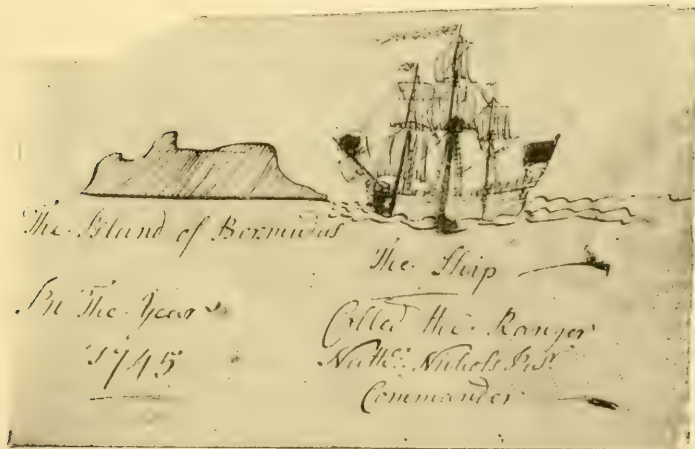 The Island of Bermudus
In The Year
1745
The Ship
Called the Ranger
Nath: Nichols
Commander